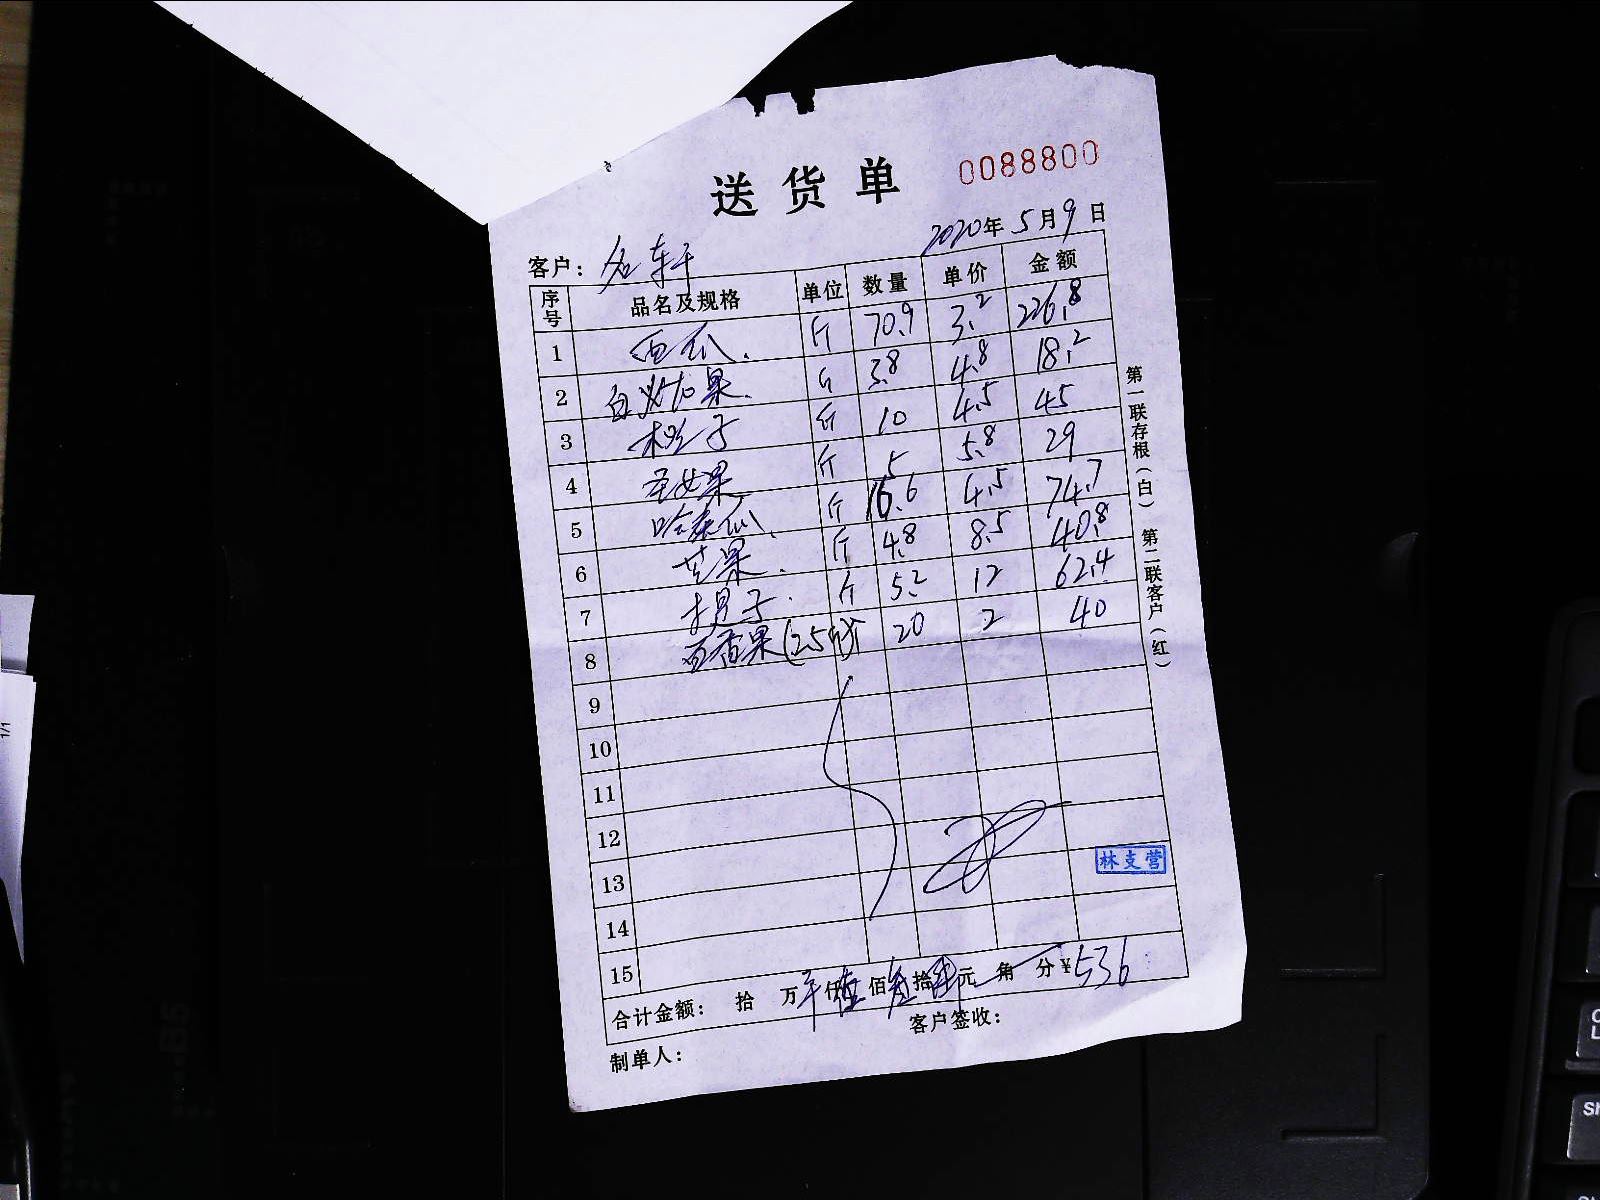 送货单 0088800
2020年5月9日
客户：名轩
序号 品名及规格 单位 数量 单价 金额
1 西瓜. 斤 70.9 3.2 226.8
2 斤 3.8 4.8 18.2
3 橙子 斤 10 4.5 45
4 圣女果 斤 5 5.8 29
5 哈密瓜. 斤 16.6 4.5 74.7
6 芒果. 斤 4.8 8.5 40.8
7 提子. 斤 5.2 12 62.4
8 百香果 20 2 40
9
10
11
12
13
14
15
林支营
合计金额： 拾 万 仟 佰 拾 元 角 分 ¥536
制单人： 客户签收：
第一联存根（白） 第二联客户（红）